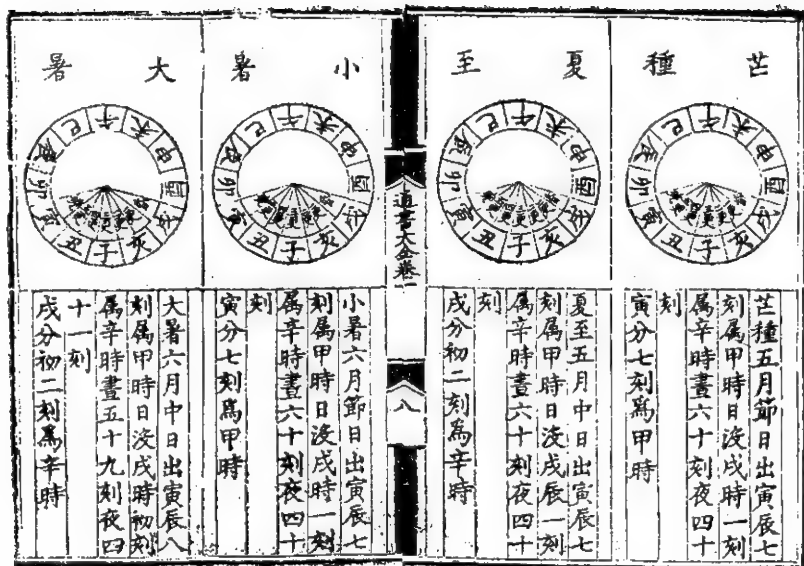 芒種
午
未
申
酉
戌
亥
子
丑
寅
卯
辰
巳
芒種五月節日出寅辰七
刻属甲時日没戌時一刻
属辛時晝六十刻夜四十
刻
寅分七刻爲甲時
夏至
午
未
申
酉
戌
亥
子
丑
寅
卯
辰
巳
夏至五月中日出寅辰七
刻属甲時日没戌辰一刻
属辛時晝六十刻夜四十
刻
戌分初二刻為辛時
通書大全卷一
八
小暑
午
未
申
酉
戌
亥
子
丑
寅
卯
辰
巳
小暑六月節日出寅辰七
刻属甲時日没戌時一刻
属辛時晝六十刻夜四十
刻
寅分七刻爲甲時
大暑
午
未
申
酉
戌
亥
子
丑
寅
卯
辰
巳
大暑六月中日出寅辰八
刻属甲時日没戌時初刻
属辛時晝五十九刻夜四
十一刻
戌分初二刻為辛時